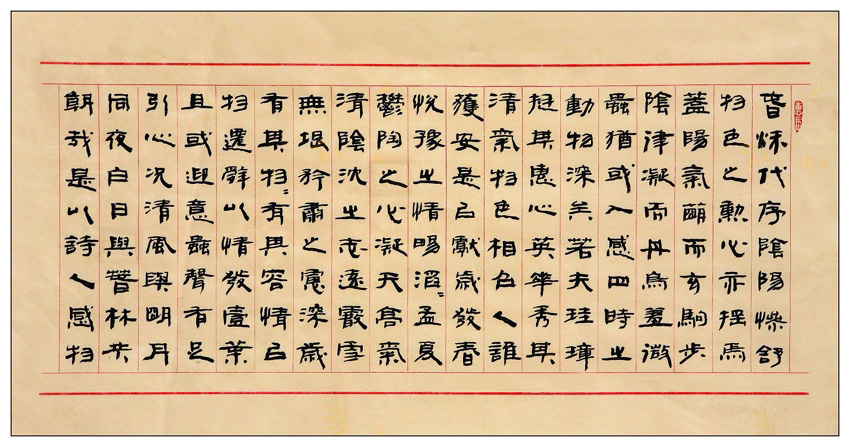 春秋代序陰陽慘舒
物色之動心亦搖焉
蓋陽氣萌而玄駒步
陰律凝而丹鳥羞微
蟲猶或入感四時之
動物深矣若夫珪璋
挺其惠心英華秀其
清氣物色相召人誰
獲安是以獻歲發春
悅豫之情暢滔〻孟夏
鬱陶之心凝天高氣
清陰沈之志遠霰雪
無垠矜肅之慮深歲
有其物〻有其容情以
物遷辭以情發壹葉
且或迎意蟲聲有足
引心況清風與明月
同夜白日與春林共
朝哉是以詩人感物